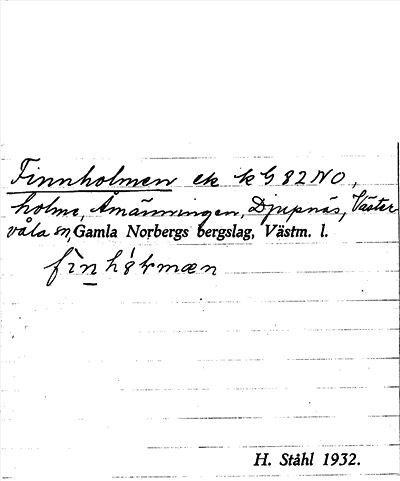 Finnholmen ek k G 82 NO,
holme, Åmänningen, Djupnäs, Väster-
våla sn, Gamla Norbergs bergslag, Västm. l.
H. Ståhl 1932.